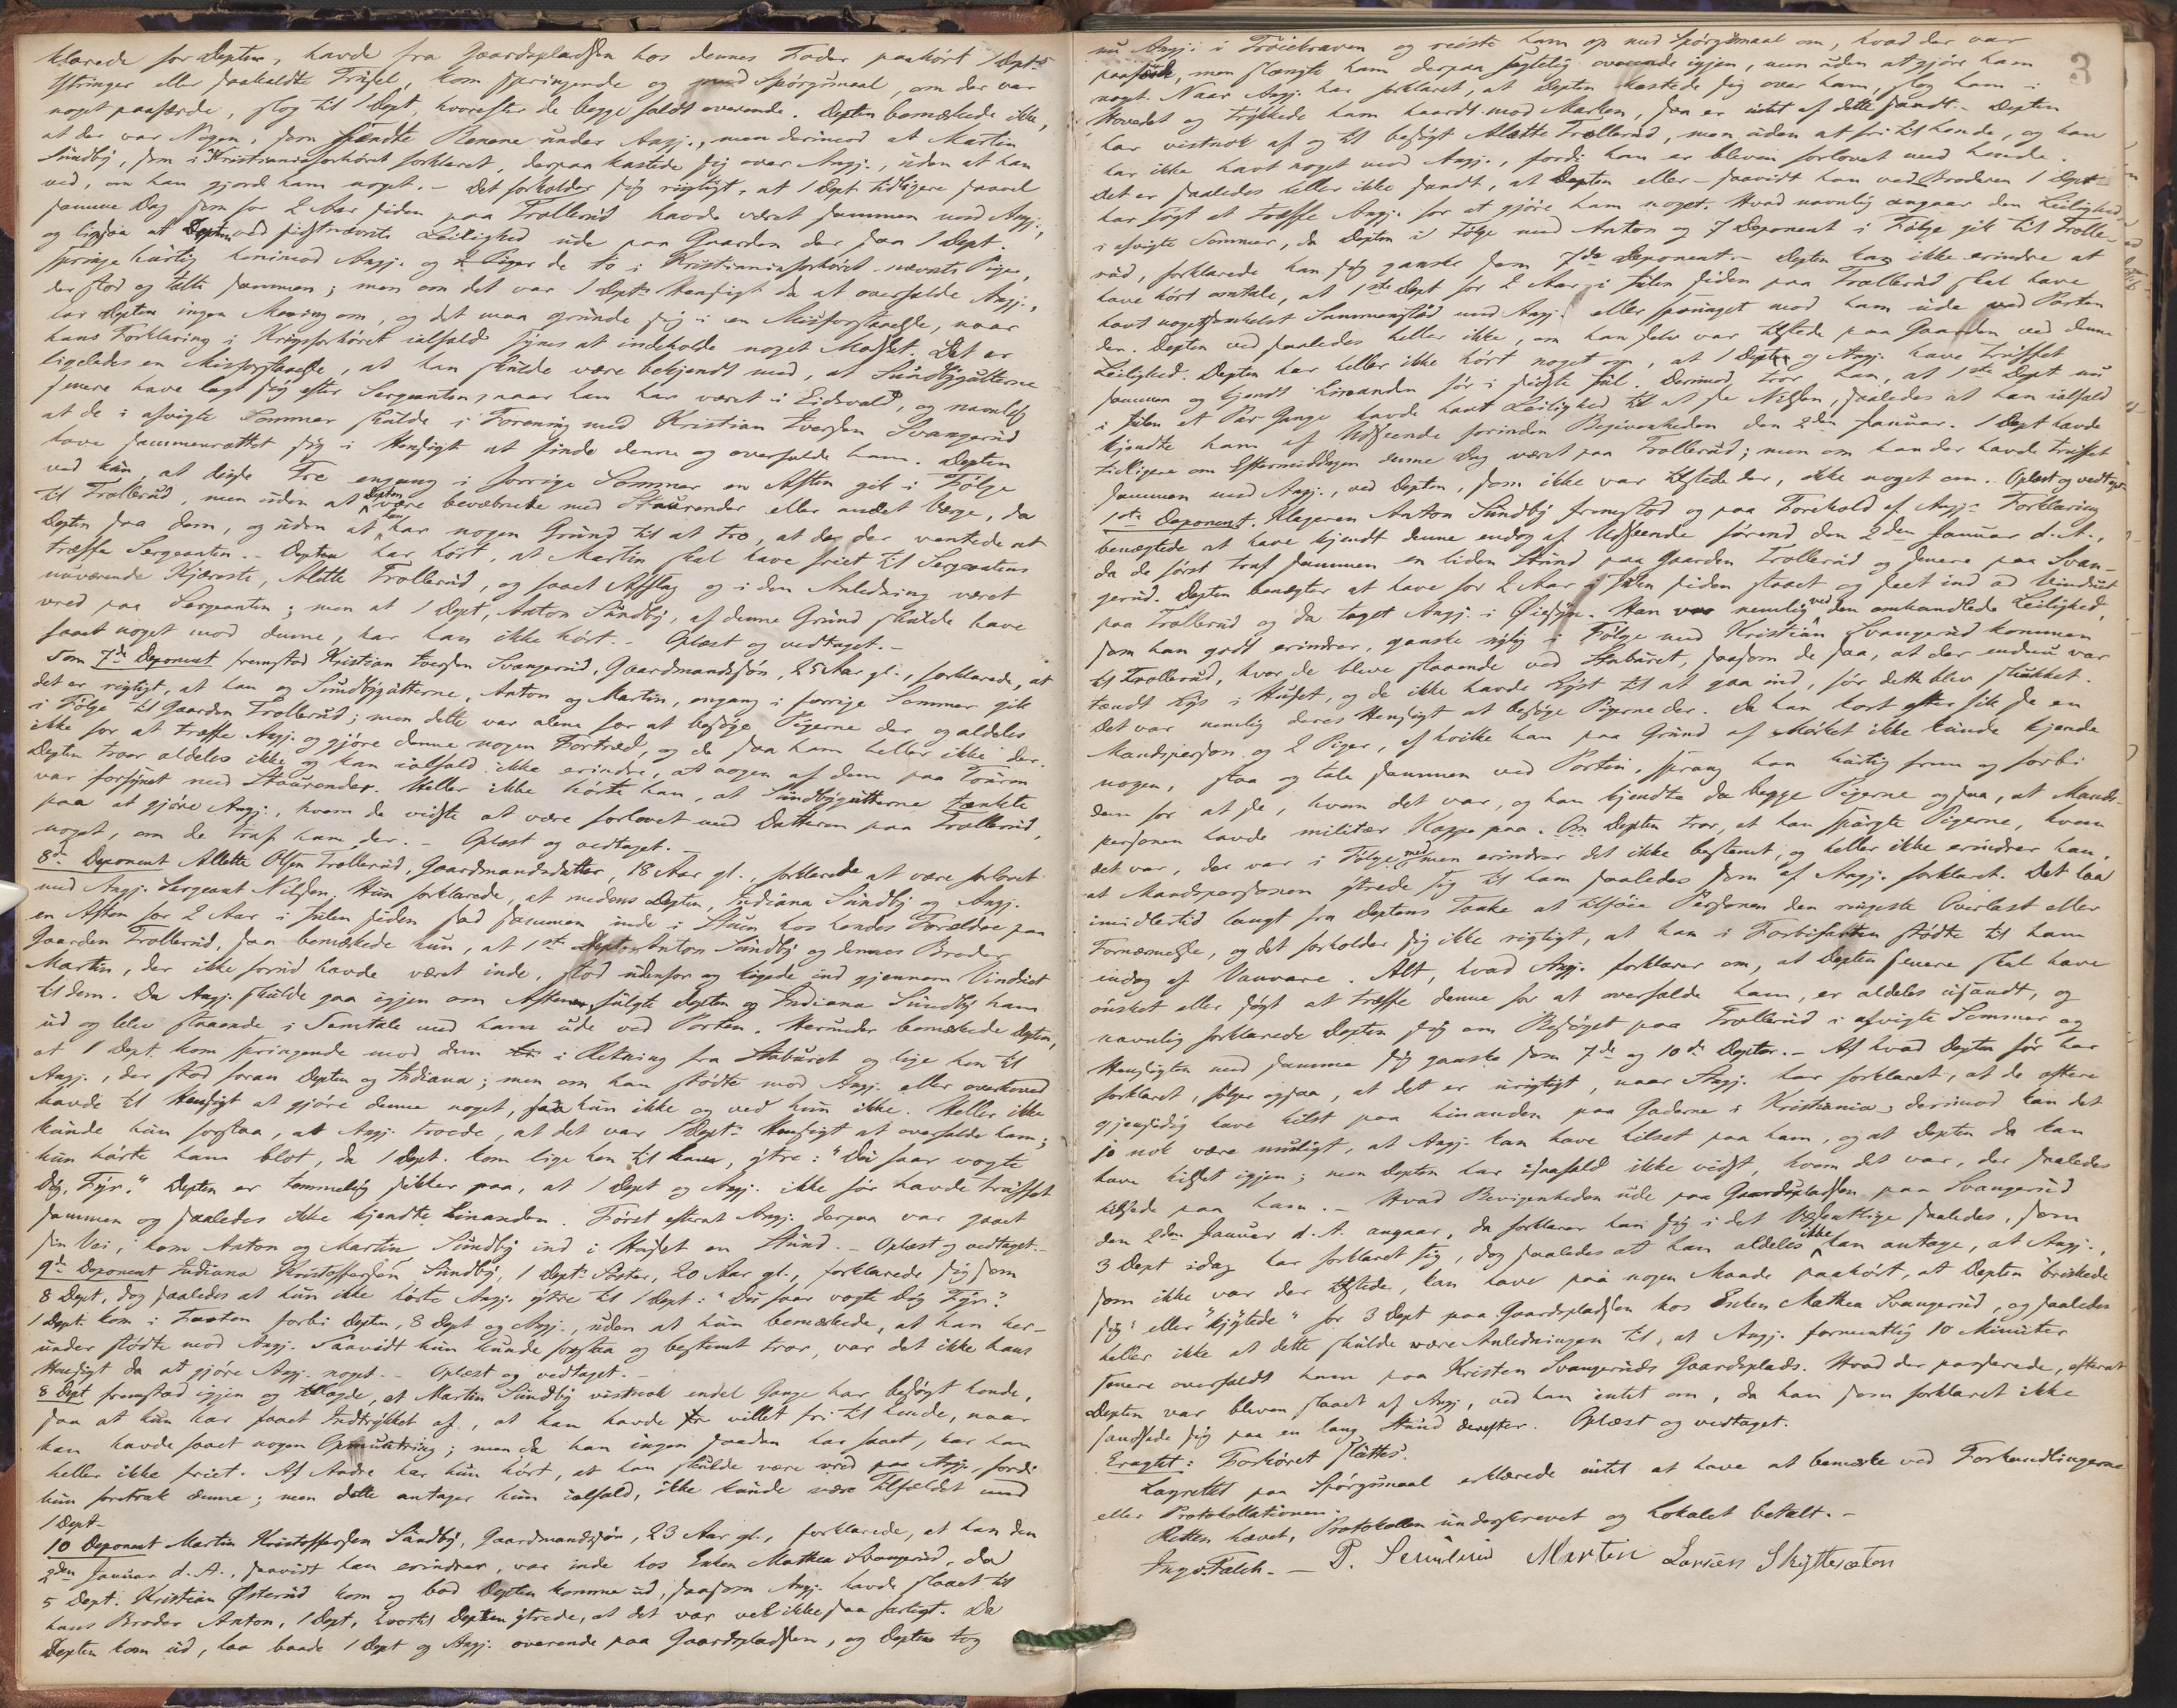 klarede for Depten, havde fra Gaardspladsen hos dennes Fader paahørt 1 Dept's
Ytringer eller saakaldte Trusel, kom springende og med Spørgsmaal, om der var
noget paafærde, slog til 1 Dept, hvorefter de begge faldt overende. Depten bemærkede ikke,
at der var Nogen, som spændte Benene under Angj., men derimod at Martin
Sundby, som i Kristianiaforhøret forklaret, derpaa kastede sig over Angj., uden at han
ved, om han gjorde ham noget. - Det forholder sig rigtigt, at 1 Dept tidligere saavel
samme Dag som for 2 Aar siden paa Trollerud havde været sammen med Angj.,
og ligesaa at Depten ved sidstnævnte Leilighed ude paa Gaarden der saa 1 Dept.
springe hurtig henimod Angj. og de to i Kristianiaforhøret nævnte Piger,
der stod og talte sammen; men om det var 1 Dept's Hensigt da at overfalde Angj.,
har Depten ingen Mening om, og det maa grunde sig i en Misforstaaelse, naar
hans Forklaring i Krigsforhøret ialfald synes at indeholde noget Modsat. Det er
ligeledes en Misforstaaelse, at han skulde være bekjendt med, at Sundbygutterne
senere have lagt sig efter Sergeanten, naar han har været i Eidsvold, og navnlig
at de i afvigte Sommer skulde i Forening med Kristian Iversen Svangerud
have sammenrottet sig i Hensigt at finde denne og overfalde ham. Depten
ved kun, at disse Tre engang i forrige Sommer en Aften gik i Følge
til Trollerud, men uden at Depten være bevæbnede med Staurender eller andet Værge, da
Depten saa dem, og uden at han har nogen Grund til at tro, at de der ventede at
træffe Sergeanten. - Depten har hørt, at Martin skal have friet til Sergeantens
nuværende Kjæreste, Alette Trollerud, og faaet Afslag og i den Anledning været
vred paa Sergeanten; men at 1 Dept, Anton Sundby, af denne Grund skulde have
faaet noget mod denne, har han ikke hørt. - Oplæst og vedtaget. -
Som 7de Deponent fremstod Kristian Iversen Svangerud, Gaardmandssøn, 25 Aar gl., forklarede, at
det er rigtigt, at han og Sundbygutterne, Anton og Martin, engang i forrige Sommer gik
i Følge til Gaarden Trollerud; men dette var alene for at besøge Pigerne der og aldeles
ikke for at træffe Angj. og gjøre denne nogen Fortræd, og de saa ham heller ikke der.
Depten tror aldeles ikke og kan ialfald ikke erindre, at nogen af dem paa Touren
var forsynet med Staurender. Heller ikke hørte han, at Sundbygutterne tænkte
paa at gjøre Angj., hvem de vidste at være forlovet med Datteren paa Trollerud,
noget, om de traf ham der. - Oplæst og vedtaget. -
8de Deponent Allette Olsen Trollerud, Gaardmandsdatter, 18 Aar gl., forklarede at være forlovet
med Angj. Sergeant Nilsen. Hun forklarede, at medens Depten, Indiana Sundby og Angj.
en Aften for 2 Aar i Julen siden sad sammen inde i Stuen hos hendes Forældre paa
Gaarden Trollerud, saa bemærkede hun, at 1ste Dept. Anton Sundby og dennes Broder
Martin, der ikke forud havde været inde, stod udenfor og kigede ind gjennem Vinduet
til dem. Da Angj. skulde gaa igjen om Aftenen, fulgte Depten og Indiana Sundby ham
ud og blev staaende i Samtale med ham ude ved Porten. Herunder bemærkede Depten,
at 1 Dept. kom springende mod dem i Retning fra Staburet og lige hen til
Angj., der stod foran Depten og Indiana; men om han stødte mod Angj. eller overhoved
havde til Hensigt at gjøre denne noget, saa hun ikke og ved hun ikke. Heller ikke
kunde hun forstaa, at Angj. troede, at det var 1 Dept's Hensigt at overfalde ham;
hun hørte ham blot, da 1 Dept. kom lige hen til ham, ytre: "Du faar vogte
Dig, Fyr." Depten er temmelig sikker paa, at 1 Dept og Angj. ikke før havde truffet
sammen og saaledes ikke kjendte hinanden. Først efterat Angj. derpaa var gaaet
sin Vei, kom Anton og Martin Sundby ind i Huset en Stund. - Oplæst og vedtaget. -
9de Deponent Indiana Kristoffersen Sundby, 1 Dept's Søster, 20 Aar gl., forklarede sig som
8 Dept, dog saaledes at hun ikke hørte Angj. ytre til 1 Dept: "Du faar vogte Dig Fyr".
1 Dept kom i Farten forbi Depten, 8 Dept og Angj., uden at hun bemærkede, at han her-
under stødte mod Angj. Saavidt hun kunde forstaa og bestemt tror, var det ikke hans
Hensigt da at gjøre Angj. noget. - Oplæst og vedtaget. -
8 Dept fremstod igjen og tillagde, at Martin Sundby vistnok endel Gange har besøgt hende,
saa at hun har faaet Indtrykket af, at han havde villet fri til hende, naar
han havde faaet nogen Opmuntring; men da han ingen saadan har faaet, har han
heller ikke friet. Af Andre har hun hørt, at han skulde være vred paa Angj., fordi
hun foretrak denne; men dette antager hun ialfald, ikke kunde være Tilfældet med
1 Dept -
10 Deponent Martin Kristoffersen Sundby, Gaardmandssøn, 23 Aar gl., forklarede, at han den
2den Januar d. A., saavidt han erindrer, var inde hos Enken Mathea Svangerud, da
5 Dept. Kristian Østerud kom og bad Depten komme ud, saasom Angj. havde slaaet til
hans Broder Anton, 1 Dept, hvortil Depten ytrede, at det var vel ikke saa farligt. Da
Depten kom ud, laa baade 1 Dept og Angj. overende paa Gaardspladsen, og Depten tog
3
nu Angj. i Trøiekraven og reiste ham op med Spørgsmaal om, hvad der var
paafærde, men slængte ham derpaa sagtelig overende igjen, men uden at gjøre ham
noget. Naar Angj. har forklaret, at Depten kastede sig over ham, slog ham i
Hovedet og trykkede ham haardt mod Marken, saa er intet af dette sandt. - Depten
har vistnok af og til besøgt Alette Trollerud, men uden at fri til hende, og han
har ikke havt noget mod Angj., fordi han er bleven forlovet med hende.
Det er saaledes heller ikke sandt, at Depten eller - saavidt han ved - Broderen 1 Dept
har søgt at træffe Angj. for at gjøre ham noget. Hvad navnlig angaar den Leilighed
i afvigte Sommer, da Depten i Følge med Anton og 7 Deponent i Følge gik til Trolle-
rud, forklarede han sig ganske som 7de Deponent. - Depten kan ikke erindre at
have hørt omtale, at 1ste Dept for 2 Aar i Julen siden paa Trollerud skal have
havt nogetsomhelst Sammenstød med Angj. eller sprunget mod ham ude ved Porten
der. Depten ved saaledes heller ikke, om han selv var tilstede paa Gaarden ved denne
Leilighed. Depten har heller ikke hørt noget om, at 1 Dept og Angj. have truffet
sammen og kjendt hinanden før i sidste Jul. Derimod tror han, at 1ste Dept nu
i Julen et Par Gange havde havt Leilighed til at se Nilsen, saaledes at han ialfald
kjendte ham af Udseende forinden Begivenheden den 2den Januar. 1 Dept havde
tidligere om Eftermiddagen denne Dag været paa Trollerud; men om han der havde truffet
sammen med Angj., ved Depten, som ikke var tilstede der, ikke noget om. Oplæst og vedtaget
1ste Deponent. Klageren Anton Sundby fremstod og paa Forehold af Angj's Forklaring
benægtede at have kjendt denne endog af Udseende førend den 2den Januar d. A.,
da de først traf sammen en liden Stund paa Gaarden Trollerud og senere paa Svan-
gerud. Depten benægter at have for 2 Aar i Julen siden staaet og seet ind ad Vinduet
paa Trollerud og da taget Angj. i Øiesyn. Han var nemlig ved den omhandlede Leilighed,
som han godt erindrer, ganske rigtig i Følge med Kristian Svangerud kommen
til Trollerud, hvor de bleve staaende ved Staburet, saasom de saa, at der endnu var
tændt Lys i Huset, og de ikke havde Lyst til at gaa ind, før dette blev slukket.
Det var nemlig deres Hensigt at besøge Pigerne der. Da han kort efter fik se en
Mandsperson og 2 Piger, af hvilke han paa Grund af Mørket ikke kunde kjende
nogen, staa og tale sammen ved Porten, sprang han hurtig frem og forbi
dem for at se, hvem det var, og han kjendte da begge Pigerne og saa, at Mands-
personen havde militær Kappe paa. Om Depten tror, at han spurgte Pigerne, hvem
det var, der var i Følge med men erindrer det ikke bestemt, og heller ikke erindrer han,
at Mandspersonen ytrede sig til ham saaledes som af Angj. forklaret. Det laa
imidlertid langt fra Deptens Tanke at tilføie Personen den ringeste Overlast eller
Fornærmelse, og det forholder sig ikke rigtigt, at han i Forbifarten stødte til ham
endog af Vanvare. Alt, hvad Angj. forklarer om, at Depten senere skal have
ønsket eller søgt at træffe denne for at overfalde ham, er aldeles usandt, og
navnlig forklarede Depten sig om Besøget paa Trollerud i afvigte Sommer og
Hensigten med samme sig ganske som 7de og 10de Deptr. - Af hvad Depten før har
forklaret, følger ogsaa, at det er urigtigt, naar Angj. har forklaret, at de oftere
gjensidig have hilst paa hinanden paa Gaderne i Kristiania; derimod kan det
jo nok være muligt, at Angj. kan have hilset paa ham, og at Depten da kan
have hilset igjen; men Depten har isaafald ikke vidst, hvem det var, der saaledes
hilsede paa ham. - Hvad Begivenheden ude paa Gaardspladsen paa Svangerud
den 2den Januar d. A. angaar, da forklarer han sig i det Væsentlige saaledes, som
3 Dept idag har forklaret sig, dog saaledes at han aldeles ikke kan antage, at Angj.,
som ikke var der tilstede, kan have paa nogen Maade paahørt, at Depten briskede
sig" eller "kjytede" for 3 Dept paa Gaardspladsen hos Enken Mathea Svangerud, og saaledes
heller ikke at dette skulde være Anledningen til, at Angj. formentlig 10 Minuter
senere overfaldt ham paa Kristen Svangeruds Gaardsplads. Hvad der passerede, efterat
Depten var bleven slaaet af Angj, ved han intet om, da han som forklaret ikke
sandsede sig paa en lang Stund derefter. Oplæst og vedtaget.
Eragtet: Forhøret sluttes.
Lagrettet paa Spørgsmaal erklærede intet at have at bemærke ved Forhandlingerne
eller Protokollationen.
Retten hævet, Protokollen underskrevet og Lokalet betalt. -
Ingv. Falch. - P. Semlend Martin Larsen Skytteræten